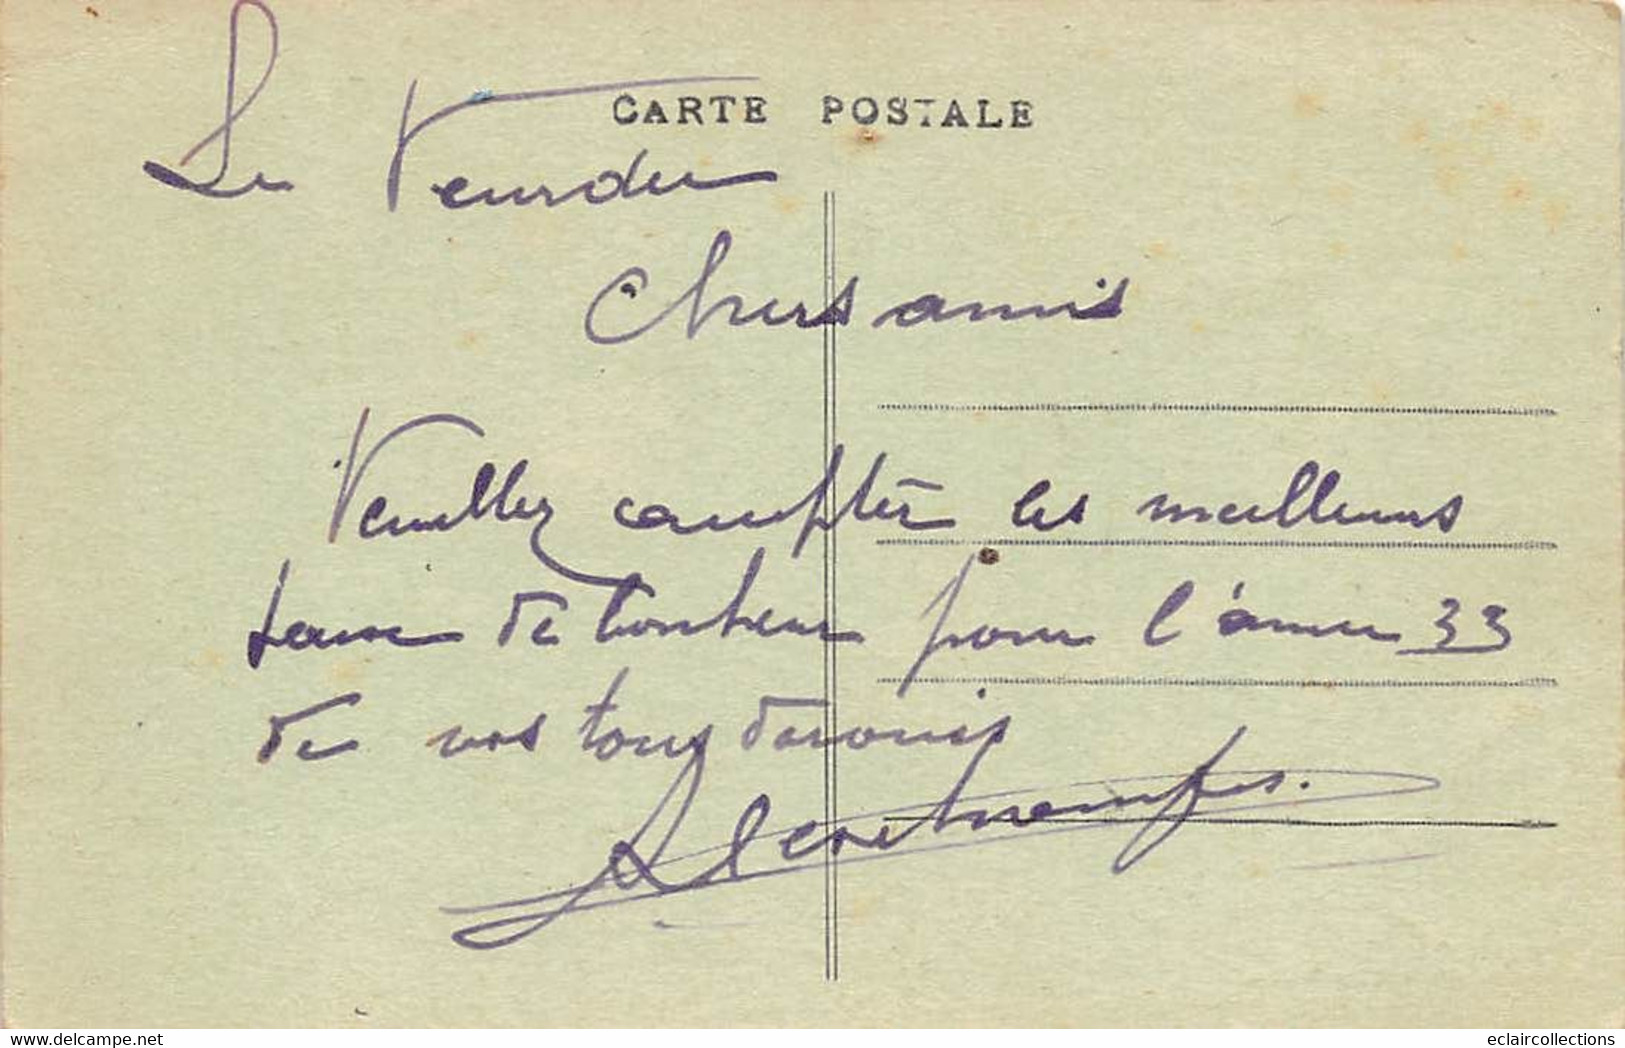 Le Veurdre
CARTE POSTALE
Chers amis
Veuillez compter les meilleurs
de bonheur pour l'année 33
de vos tous dévoués
Delcampe.net
eclaircollections